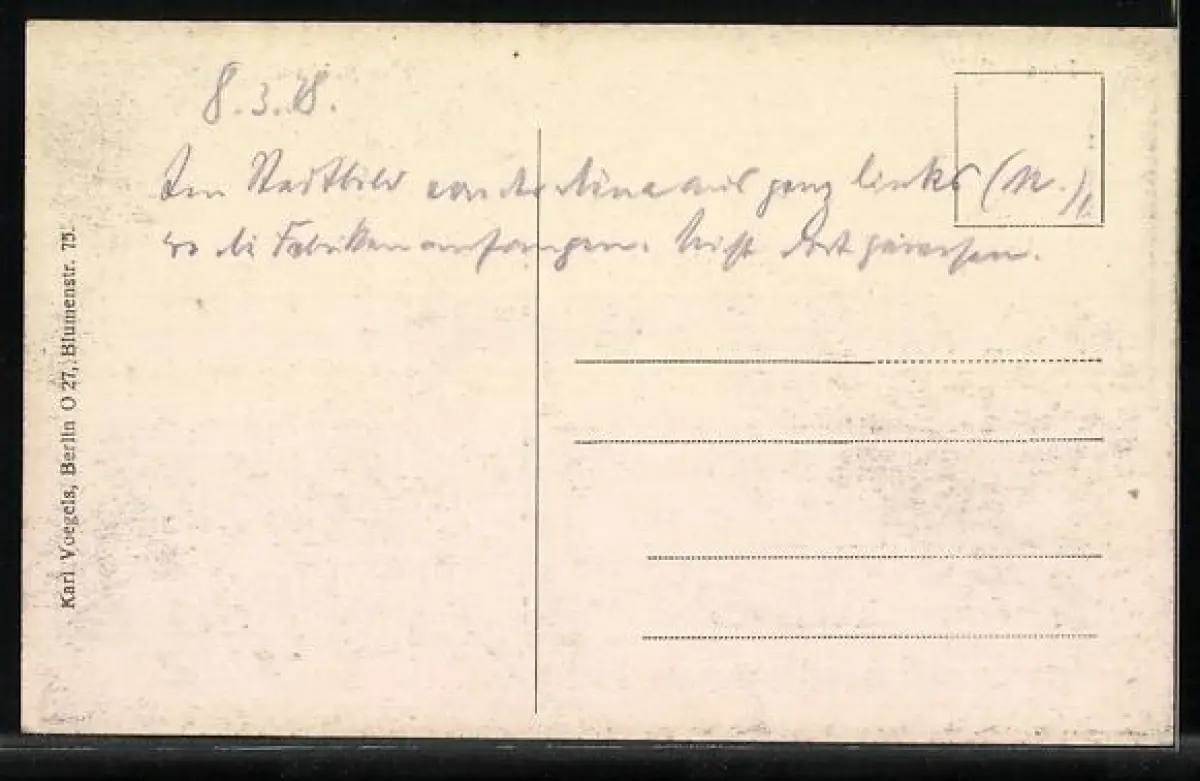 8.3.18.
Im Stadtbild von der Düna aus ganz links (N.),
wo die Fabriken anfangen. Nicht dort gewesen.
Karl Voegels, Berlin O 27, Blumenstr. 75.